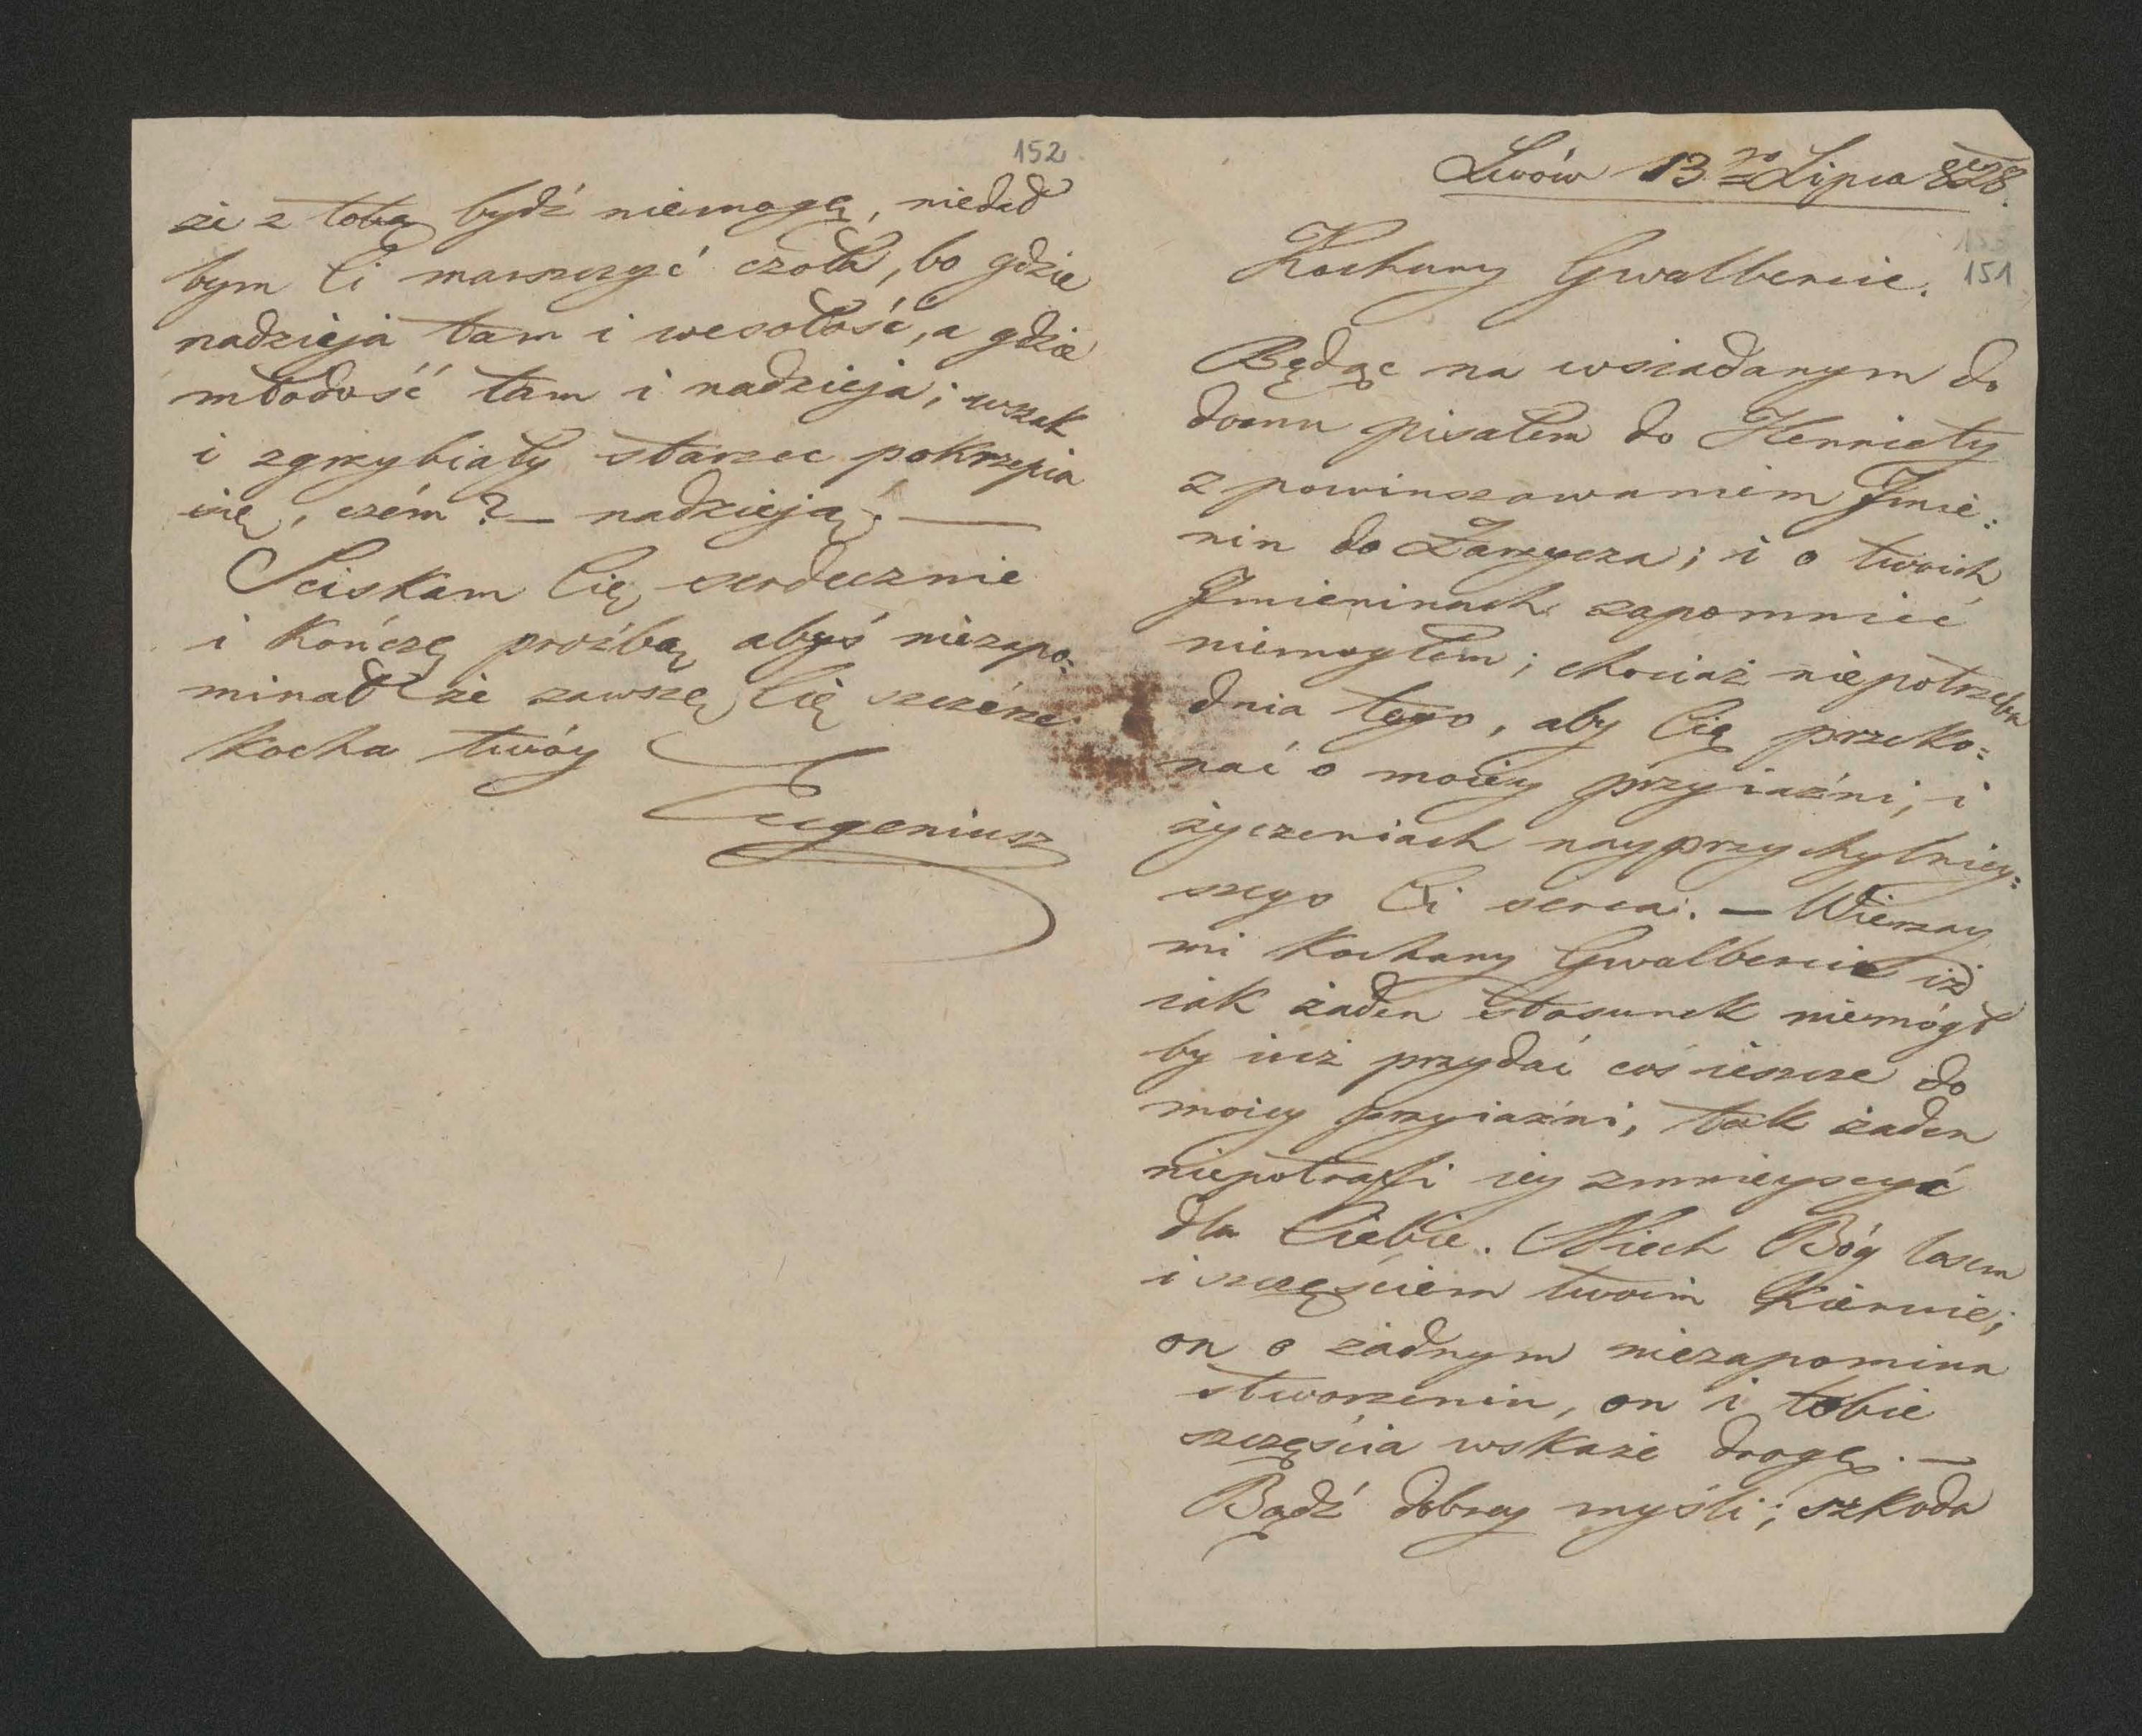 Lwów 13go Lipca 828.
151
Kochany Gwalbercie.
Będąc na wsiadanym do
domu pisałem do Henriety
z powinszowaniem Jmie:
nin do Zarzycza; i o twoich
Jmieninach zapomnieć
niemogłem; chociaż niepotrzeba
dnia tego, aby Cię przeko:
nać o moiey przyiaźni, i
życzeniach nayprzychylniey:
szego Ci serca. — Wierzay
mi Kochany Gwalbercie iż
iak żaden stosunek niemógł
by iuż przydać coś ieszcze do
moiey przyiaźni, tak żaden
niepotraffi iey zmnieyszyć
dla Ciebie. Niech Bóg losem
i szczęściem twoim Kieruie;
on o żadnym niezapomina
stworzeniu, on i tobie
szczęścia wskaże drogę. —
Bądź dobrey myśli; szkoda
152
że z tobą bydź niemogę, niedał
bym Ci marszczyć czoła, bo gdzie
nadzieja tam i wesołość, a gdzie
młodość tam i nadzieja; wszak
i zgrzybiały starzec pokrzepia
się, czém? — nadzieją. —
Sciskam Cię serdecznie
i Kończę proźbą abyś niezapo:
minał że zawsze Cię szczérze
Kocha twóy
Eugeniusz